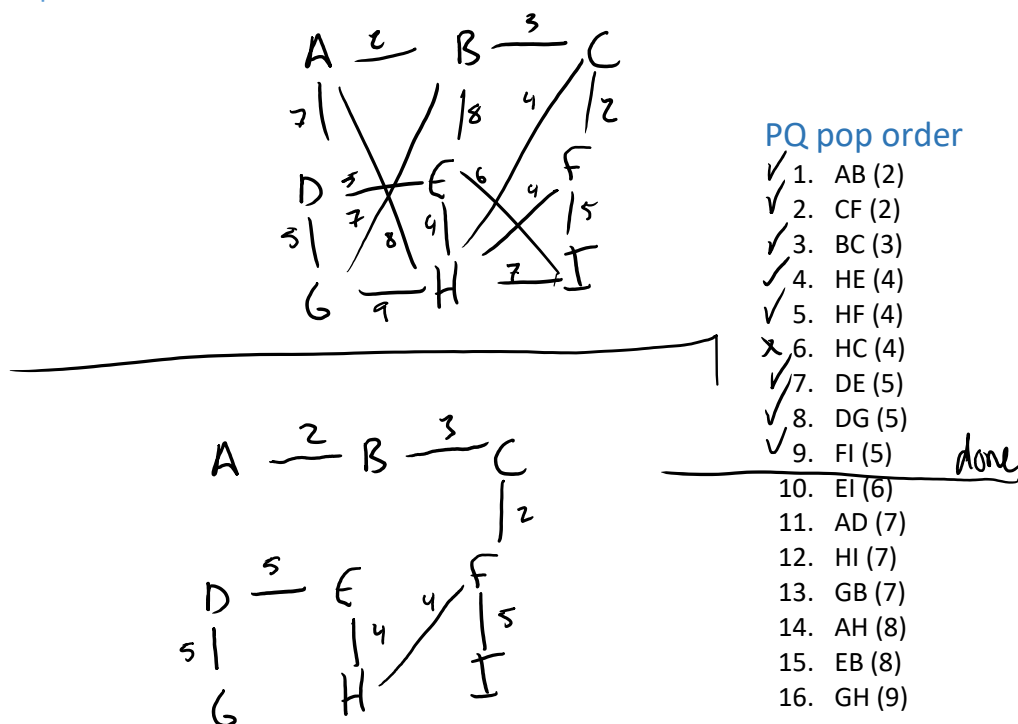 A 2 B 3 C
7 8 4 2
D 5 E 6 4 F
5 7 8 4 5
G 9 H 7 I
PQ pop order
1. AB (2)
2. CF (2)
3. BC (3)
4. HE (4)
5. HF (4)
6. HC (4)
7. DE (5)
8. DG (5)
9. FI (5) done
10. EI (6)
11. AD (7)
12. HI (7)
13. GB (7)
14. AH (8)
15. EB (8)
16. GH (9)
A 2 B 3 C
2
D 5 E 4 F
5 4 5
G H I